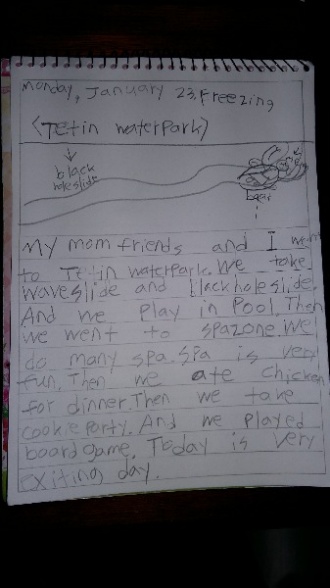 Monday, January 23. Freezing
(Tetin waterpark)
black
hole slide
My mom friends and I went
to Tetin waterpark. We take
waveslide and blackholeslide.
And we play in pool. Then
we went to spazone. We
do many spa. Spa is very
fun. Then we ate chicken
for dinner. Then we take
cookie party. And we played
board game. Today is very
exiting day.